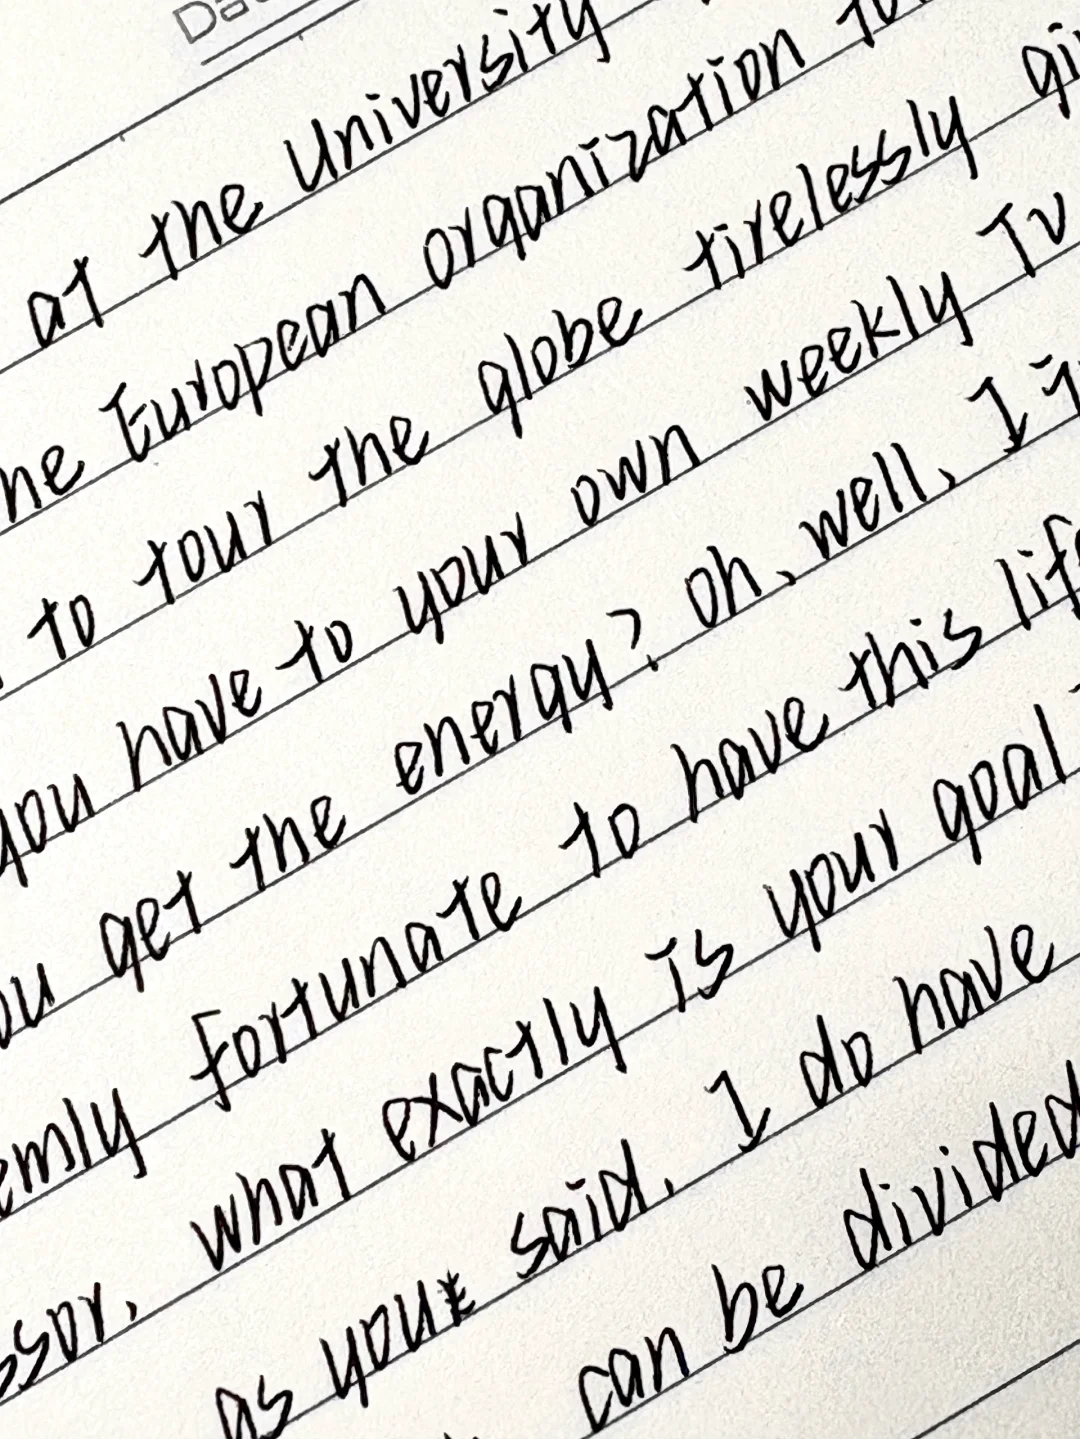 at the University
European organization
to tour the globe tirelessly
you have to your own weekly
get the energy? Oh, well, I
fortunate to have this
what exactly is your goal
as you said, I do have
can be divided